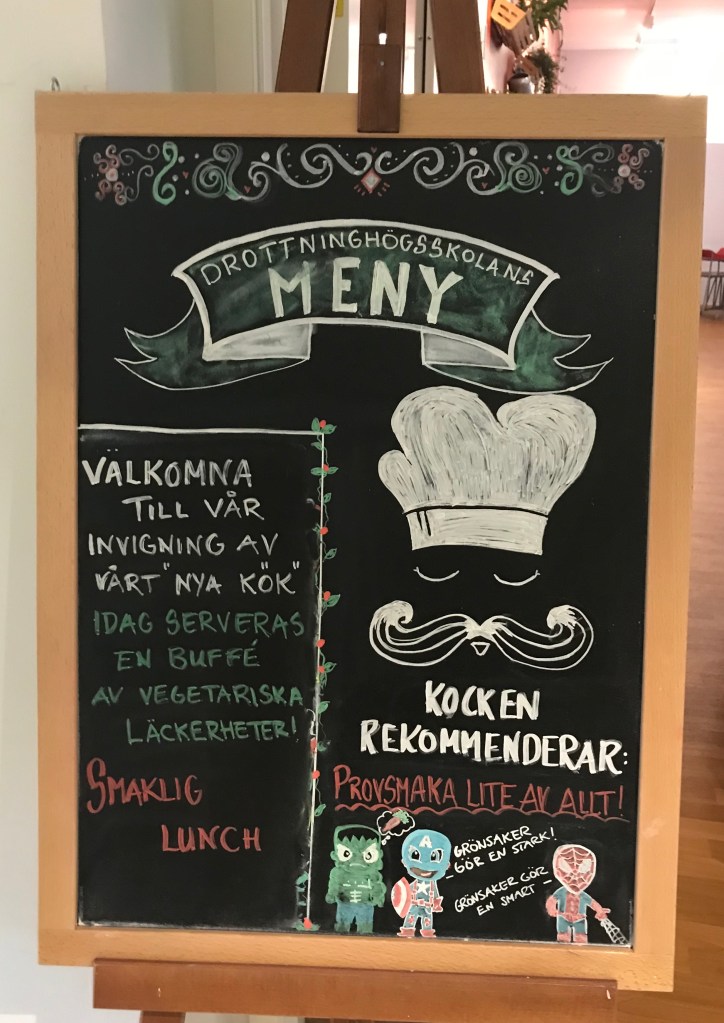 DROTTNINGHÖGSSKOLANS
MENY
VÄLKOMNA
TILL VÅR
INVIGNING AV
VÅRT "NYA KÖK"
IDAG SERVERAS
EN BUFFÉ
AV VEGETARISKA
LÄCKERHETER!
SMAKLIG
LUNCH
KOCKEN
REKOMMENDERAR:
PROVSMAKA LITE AV ALLT!
A
GRÖNSAKER
- GÖR EN STARK!
GRÖNSAKER GÖR
EN SMART -